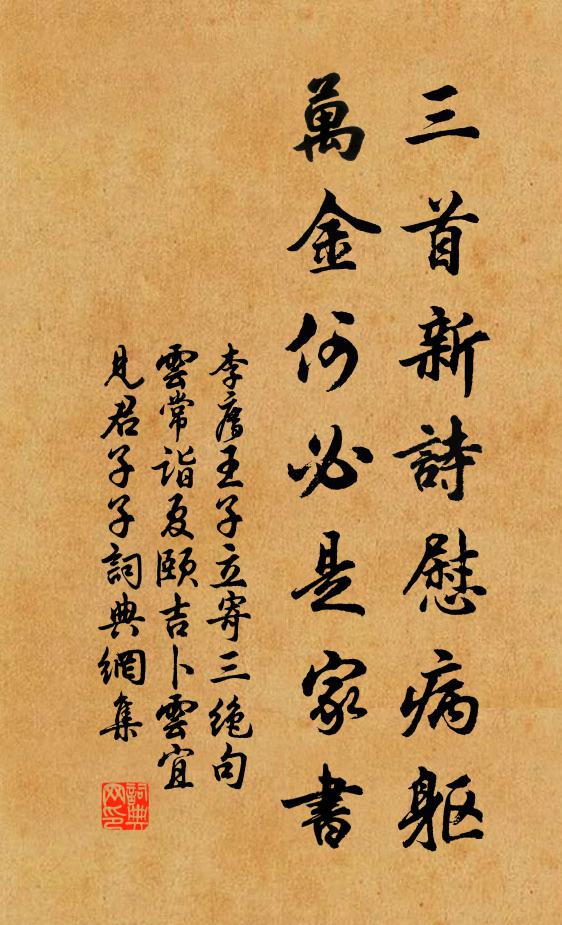 三首新詩慰病軀
萬金何必是家書
李廌王子立寄三絶句
雲常詣夏頤吉卜雲宜
見君子子詞典網集
詞典網印